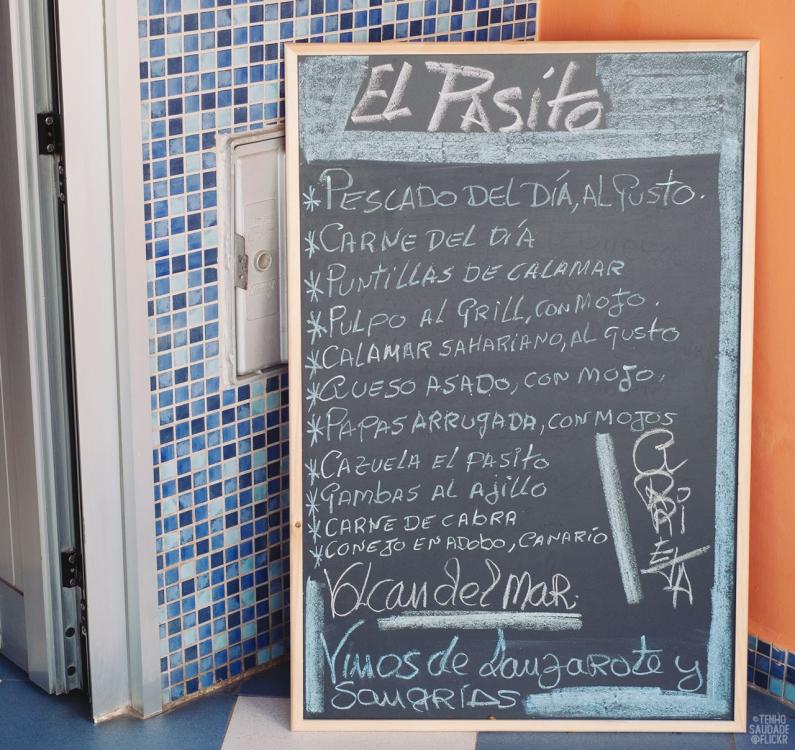 EL PASITO
* PESCADO DEL DÍA, AL GUSTO.
* CARNE DEL DÍA
* PUNTILLAS DE CALAMAR
* PULPO AL GRILL, CON MOJO.
* CALAMAR SAHARIANO, AL GUSTO
* QUESO ASADO, CON MOJO,
* PAPAS ARRUGADA, CON MOJOS
* CAZUELA EL PASITO
* GAMBAS AL AJILLO
* CARNE DE CABRA
* CONEJO EN ADOBO, CANARIO
VOLCan del MAR.
Vinos de Lanzarote y
SanGRÍAS
©TENHO
SAUDADE
@FLICKR